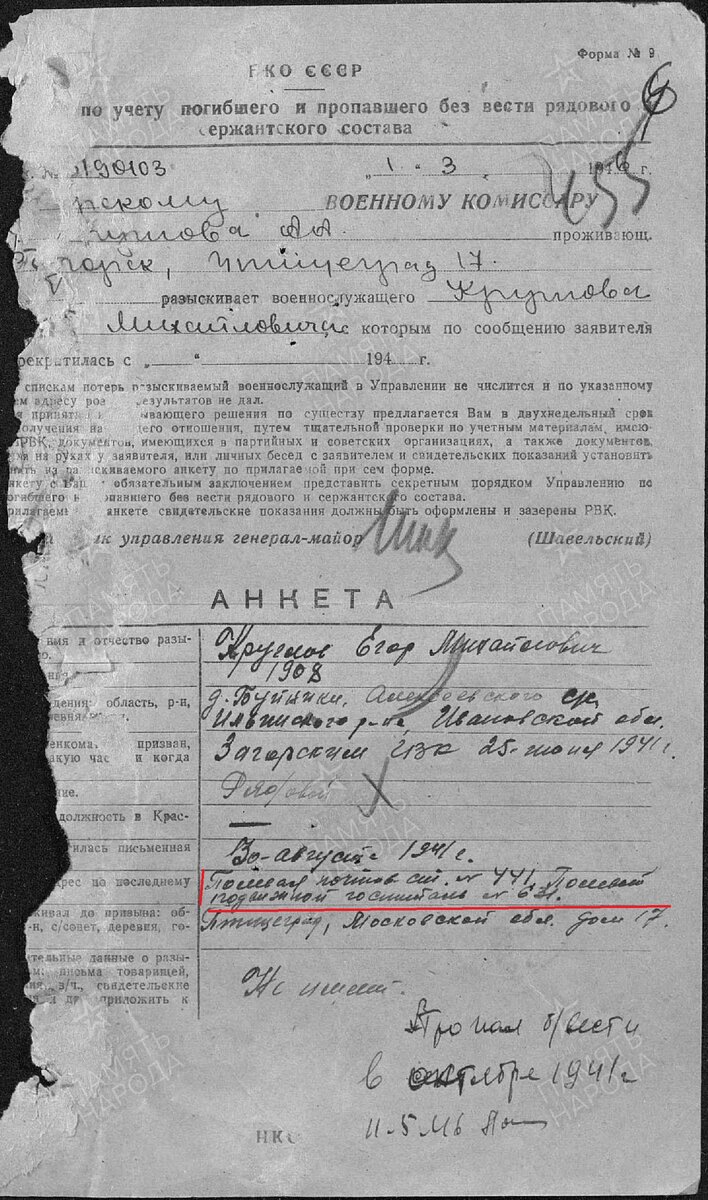 НКО СССР
Форма № 9
по учету погибшего и пропавшего без вести рядового и
сержантского состава
190103 „1" 3 194 г.
рскому ВОЕННОМУ КОМИССАРУ
А.А. проживающ.
горск, Птицеград 17.
разыскивает военнослужащего Круглова
Михайловича с которым по сообщению заявителя
рекратилась с „ " 194 г.
спискам потерь разыскиваемый военнослужащий в Управлении не числится и по указанному
ем адресу роз результатов не дал.
я принятия ывающего решения по существу предлагается Вам в двухнедельный срок
олучения на щего отношения, путем тщательной проверки по учетным материалам, имею-
РВК, документов, имеющихся в партийных и советских организациях, а также документов,
на руках у заявителя, или личных бесед с заявителем и свидетельских показаний установить
из разыскиваемого анкету по прилагаемой при сем форме.
нкету с Ваш обязательным заключением представить секретным порядком Управлению по
огибшего и опавшего без вести рядового и сержантского состава.
рилагаемые анкете свидетельские показания должны быть оформлены и заверены РВК.
ик управления генерал-майор (Шавельский)
АНКЕТА
имя и отчество разы- Круглов Егор Михайлович
1908
ждения: область, р-н, д. Алексеевского с/с,
Ильинского р-на, Ивановской обл.
енкомат призван, Загорским ГВК 25-июня 1941 г.
акую час и когда
ние. Рядовой
должность в Крас- —
тилась письменная 30-августа 1941 г.
дрес по последнему Полевая почтов. ст. № 441. Полевой
подвижной госпиталь № 631.
живал до призыва: об- Птицеград, Московской обл. дом 17.
-н, с/совет, деревня, го-
тельные данные о разы-
м: письма товарищей,
ия, в/ч., свидетельские
и др. приложить к
Не имеет.
Пропал б/вести
в октябре 1941 г
НКО
ПАМЯТЬ
НАРОДА